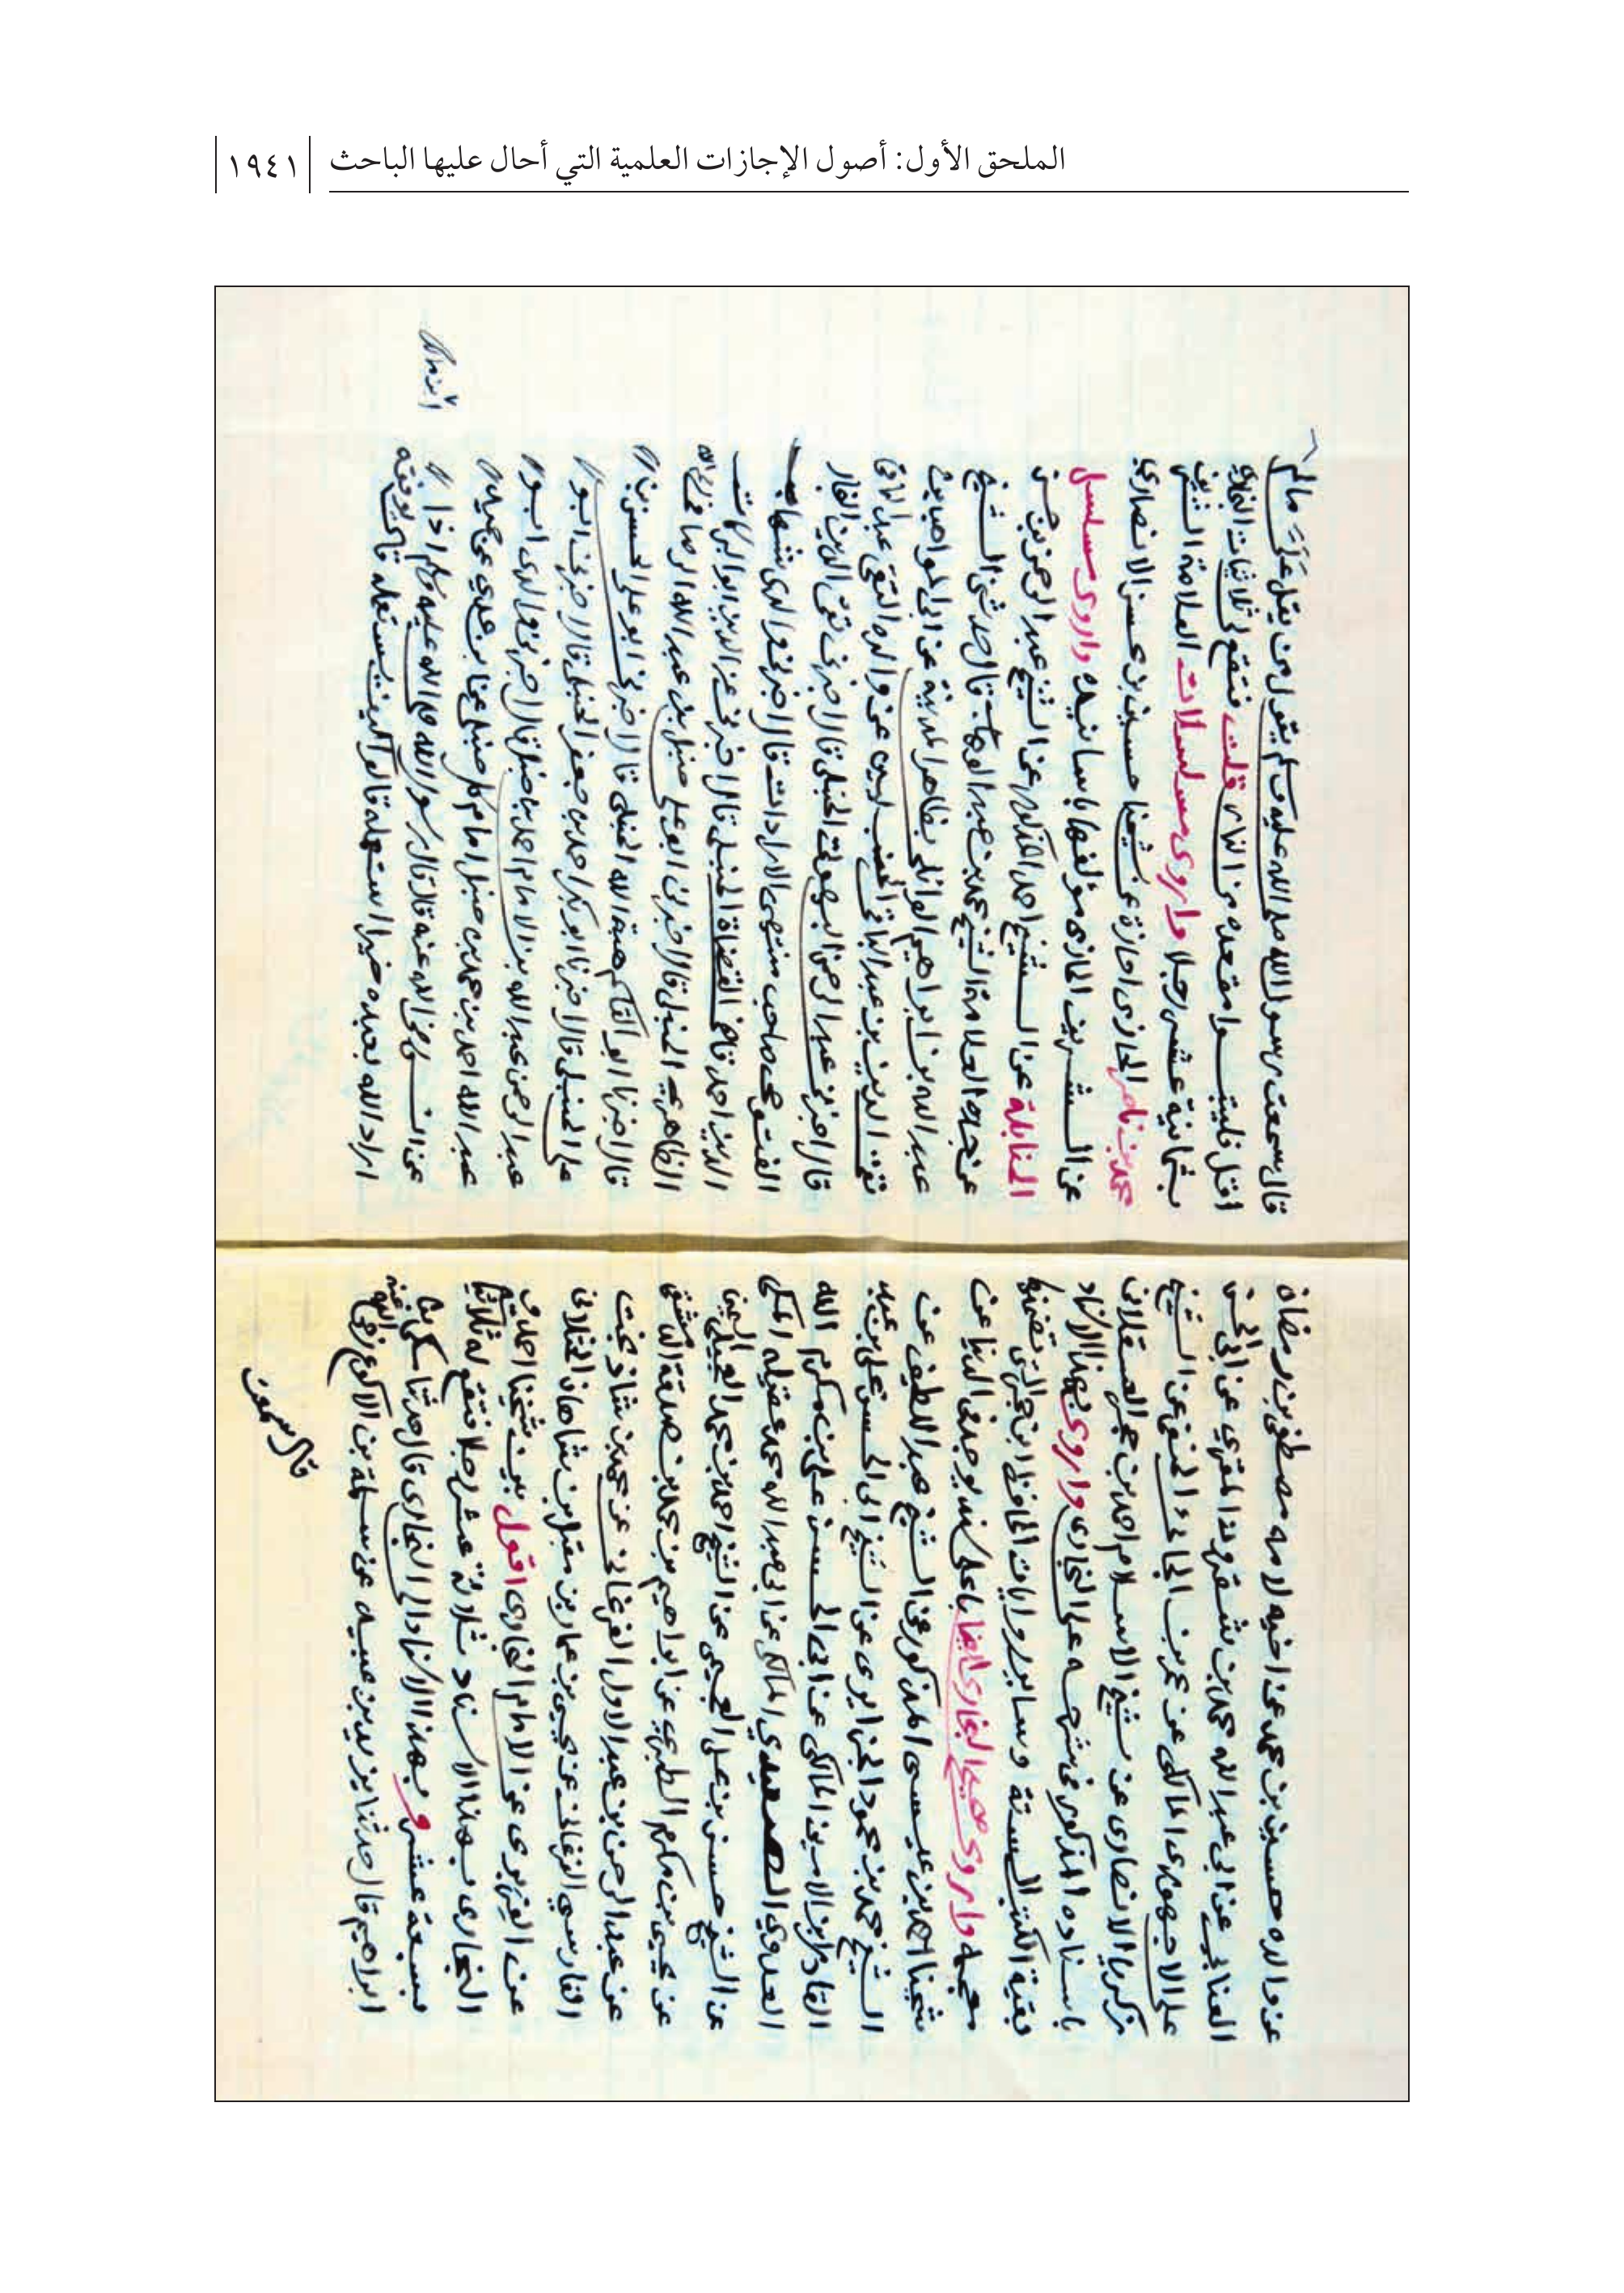 الملحق الأول: أصول الإجازات العلمية التي أحال عليها الباحث
١٩٤١
عن والده حسين بن محمد عن اخيه لامه مصطفى بن رمضان
العنابي عن ابي عبد الله محمد بن شقرون المقري عن ابي الحسن
علي الاجهوري المالكي عن عمر بن الجائي الحنفي عن الشيخ
زكريا الانصاري عن شيخ الاسلام احمد بن حجر العسقلاني
باسناده المذكور في شرحه على البخاري واروي بهذا الاسناد
بقية الكتب الستة وساير روايات الحافظ ابن حجر التي تضمنها
معجمه واروي صحيح البخاري ايضا باعلى سند يوجد في الدنيا عن
شيخنا احمد بن عيسى المذكور عن الشيخ عبد اللطيف عن
الشيخ محمد بن محمود الجزايري عن الشيخ ابي الحسن علي بن عبد
القادر بن الامين المالكي عن ابي الحسن علي بن مكرم الله
العدوي الصعيدي المالكي عن ابي عبد الله محمد عقيله المكي
عن الشيخ حسن بن علي العجيمي عن الشيخ احمد بن محمد العجيلي اليمني
عن يحيى بن مكرم الطبري عن ابراهيم بن محمد بن صدقة الدمشقي
عن عبد الرحمن بن عبد الاول الفرغاني عن محمد بن شاذ بخت
الفارسي الفرغاني عن يحيى بن عمار بن مقبل بن شاهان الختلاني
عن الفربري عن الامام البخاري اقول بين شيخنا احمد و
البخاري بهذا الاسناد ثلاثة عشر رجلا فتقع له ثلاثياته
بسبعة عشر وبهذا الاسناد الى البخاري قال حدثنا مكي بن
ابراهيم قال حدثنا يزيد بن عبيد عن سلمة بن الاكوع رضي الله عنه
قال سمعت
قال سمعت رسول الله صلى الله عليه وسلم يقول من يقل علي مالم
اقل فليتبوا مقعده من النار قلت فتقع لي ثلاثيات البخاري
بثمانية عشر رجلا واروي مسلسلات العلامة الشريف
محمد بن ناصر الحازمي اجازة عن شيخنا حسين بن محسن الانصاري
عن الشريف الحازمي مؤلفها باسانيده واروي مسلسل
الحنابلة عن الشيخ احمد المذكور عن الشيخ عبد الرحمن بن حسن
عن جده العلامة الشيخ محمد بن عبد الوهاب قال حدثني الشيخ
عبد الله بن ابراهيم الوائلي بظاهر المدينة عن ابي المواهب بن
تقي الدين بن عبد الباقي الحنبلي عن والده التقي عبد الباقي
قال اخبرني عبد الرحمن البهوتي الحنبلي قال اخبرني تقي الدين النجار
الفتوحي صاحب منتهى الارادات قال اخبرني والدي شهاب
الدين احمد قاضي القضاة الحنبلي قال اخبرني عز الدين ابو البركات
الظاهري الحنبلي قال اخبرني ابو علي حنبل بن عبد الله الرصافي
قال اخبرنا ابو القاسم هبة الله الحنبلي قال اخبرني ابو علي الحسن بن
علي الحنبلي قال اخبرنا ابو بكر احمد بن جعفر الحنبلي قال اخبرني ابو
عبد الرحمن عبد الله بن الامام احمد بن حنبل قال اخبرني والدي ابو
عبد الله احمد بن محمد بن حنبل امام كل حنبلي عن ابن عدي عن حميد
عن انس رضي الله عنه قال قال رسول الله صلى الله عليه وسلم اذا
اراد الله بعبده خيرا استعمله قالوا كيف يستعمله قال يوفقه